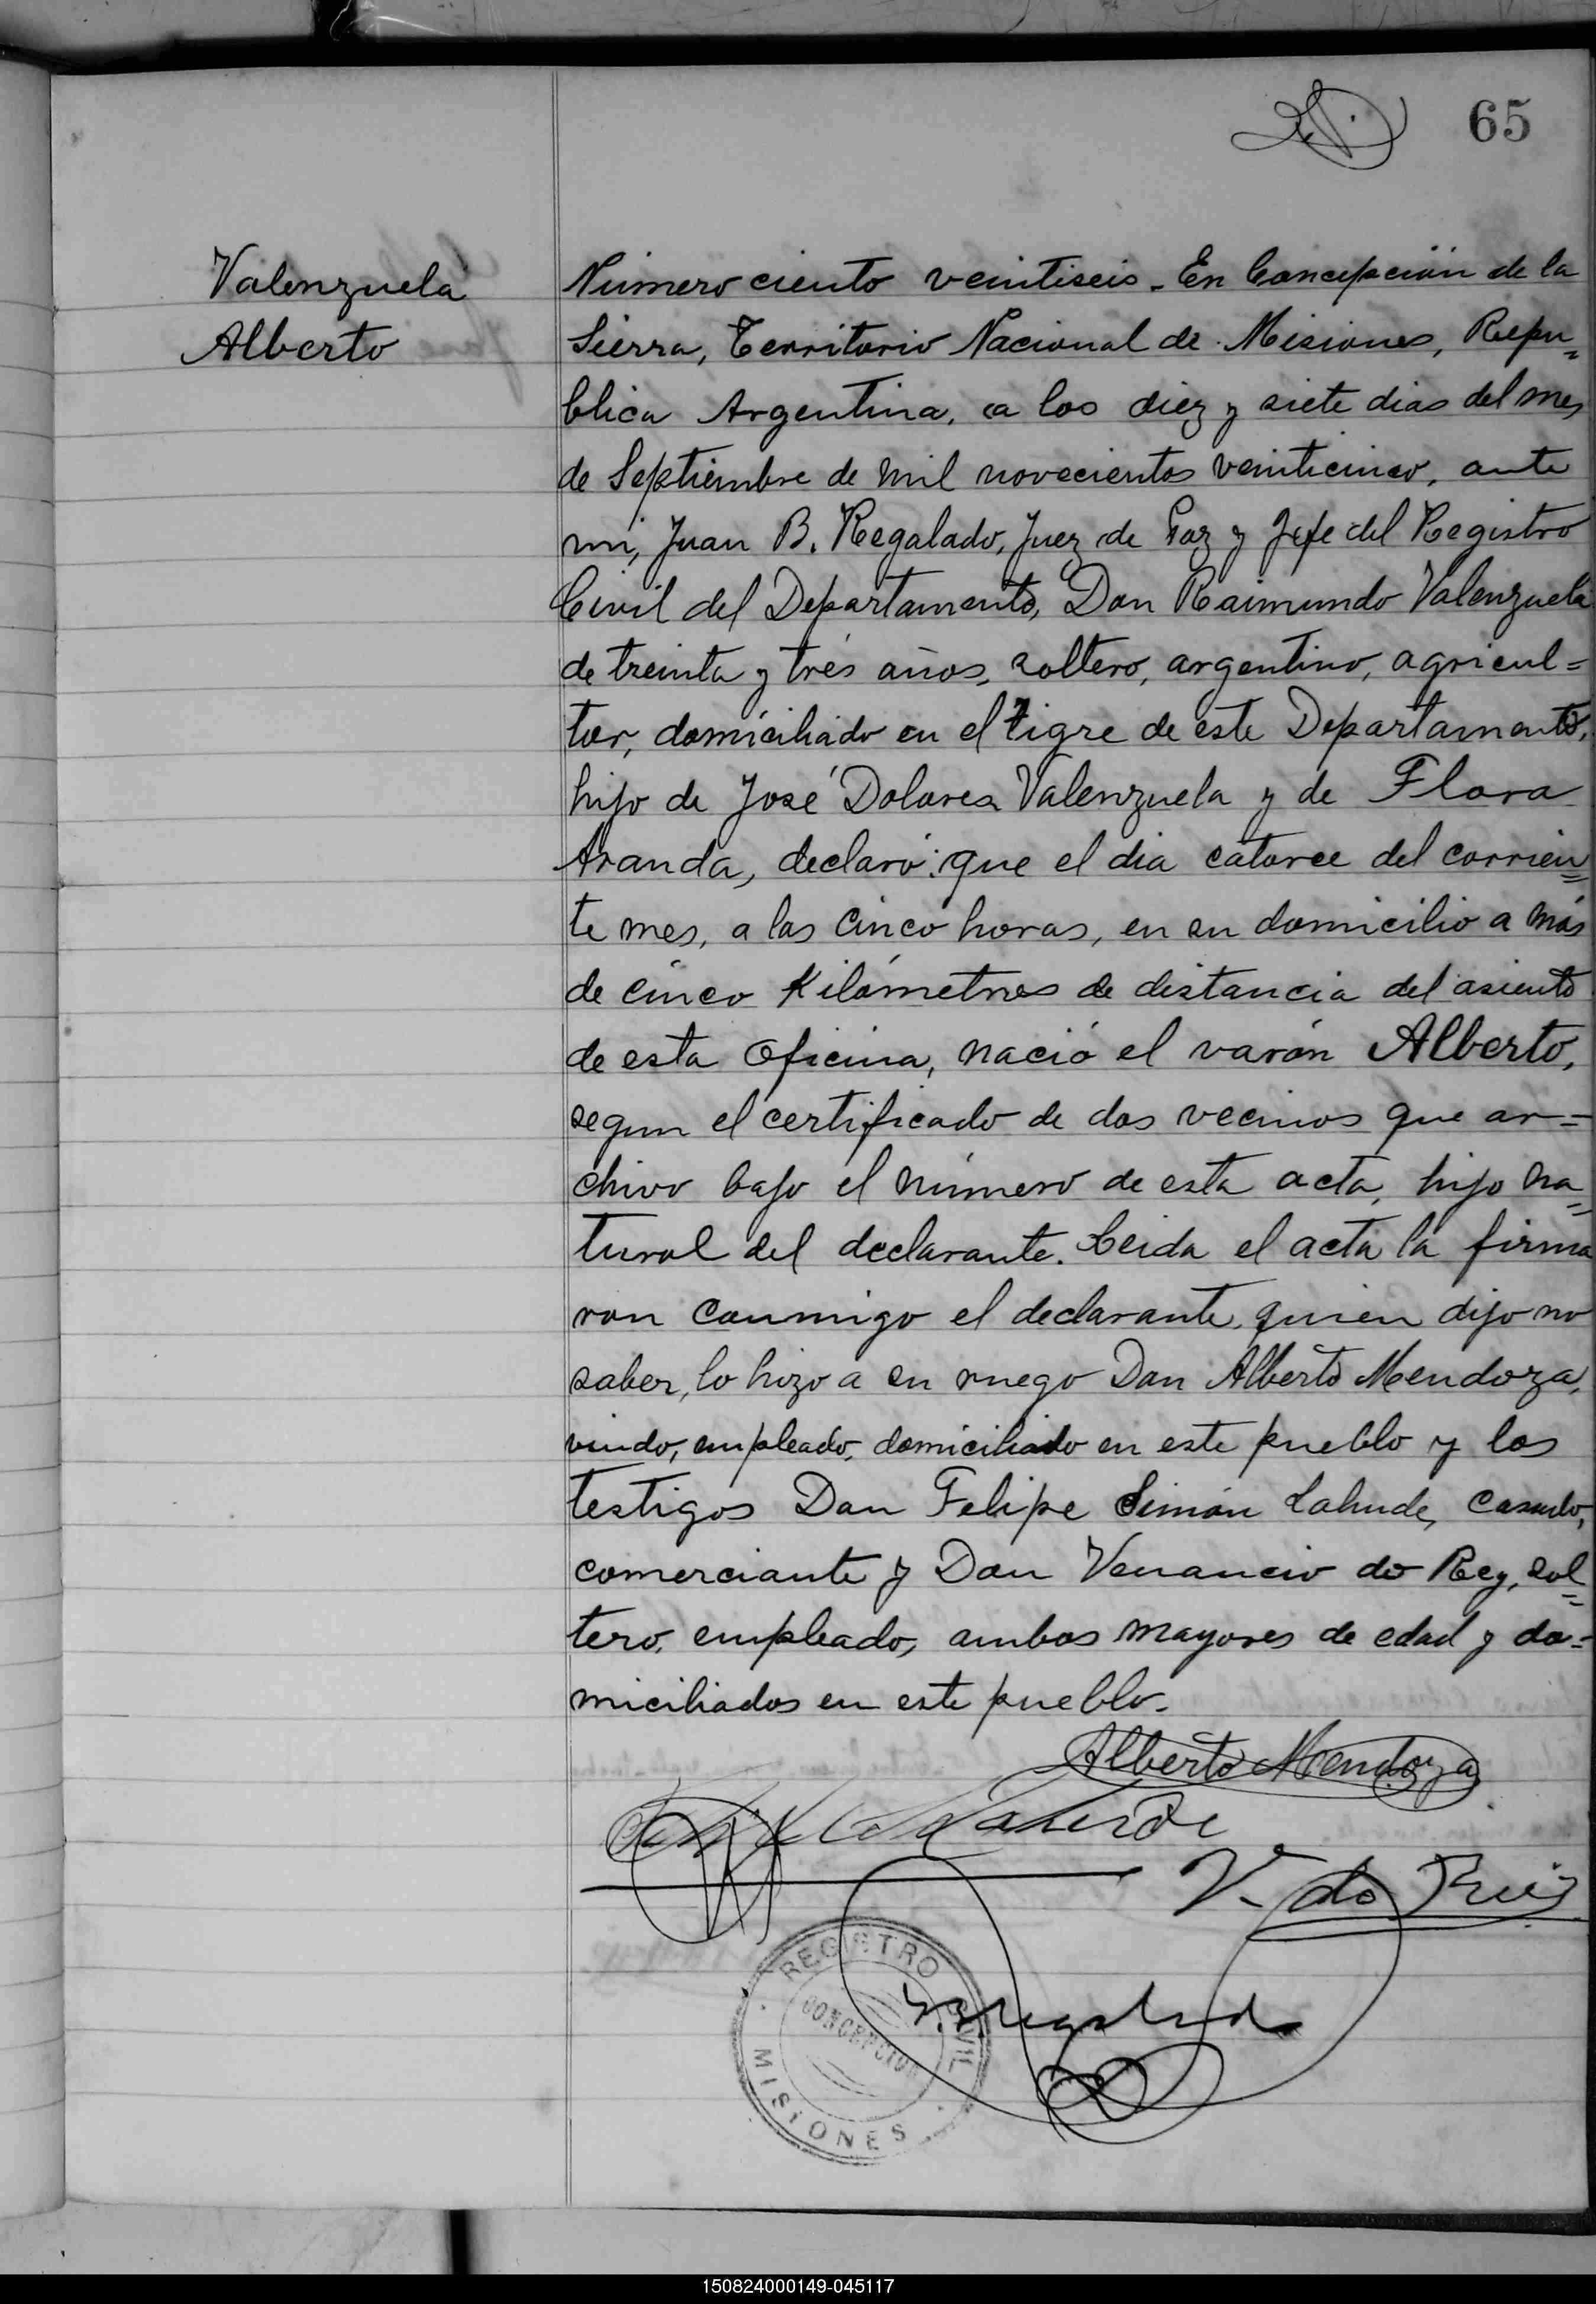 65
Valenzuela
Alberto
Número ciento veintiseis. En Concepción de la
Sierra, Territorio Nacional de Misiones, Repu=
blica Argentina, a los diez y siete dias del mes
de Septiembre de mil novecientos veinticinco, ante
mi, Juan B. Regalado, Juez de Paz y Jefe del Registro
Civil del Departamento, Don Raimundo Valenzuela
de treinta y tres años, soltero, argentino, agricul=
tor, domiciliado en el Tigre de este Departamento,
hijo de José Dolores Valenzuela y de Flora
Aranda, declaró: que el dia catorce del corrien=
te mes, a las cinco horas, en su domicilio a más
de cinco Kilómetros de distancia del asiento
de esta Oficina, nació el varón Alberto,
segun el certificado de dos vecinos que ar=
chivo bajo el número de esta acta, hijo na=
tural del declarante. Leida el acta la firma
ron conmigo el declarante, quien dijo no
saber, lo hizo a su ruego Don Alberto Mendoza,
viudo, empleado, domiciliado en este pueblo y los
testigos Don Felipe Simón Lahude, casado,
comerciante y Don Venancio do Rey, sol=
tero, empleado, ambos mayores de edad y do=
miciliados en este pueblo.
Alberto Mendoza
Lahude
V. do Reis
J. B. Regalado
REGISTRO CIVIL
CONCEPCION
MISIONES
150824000149-045117